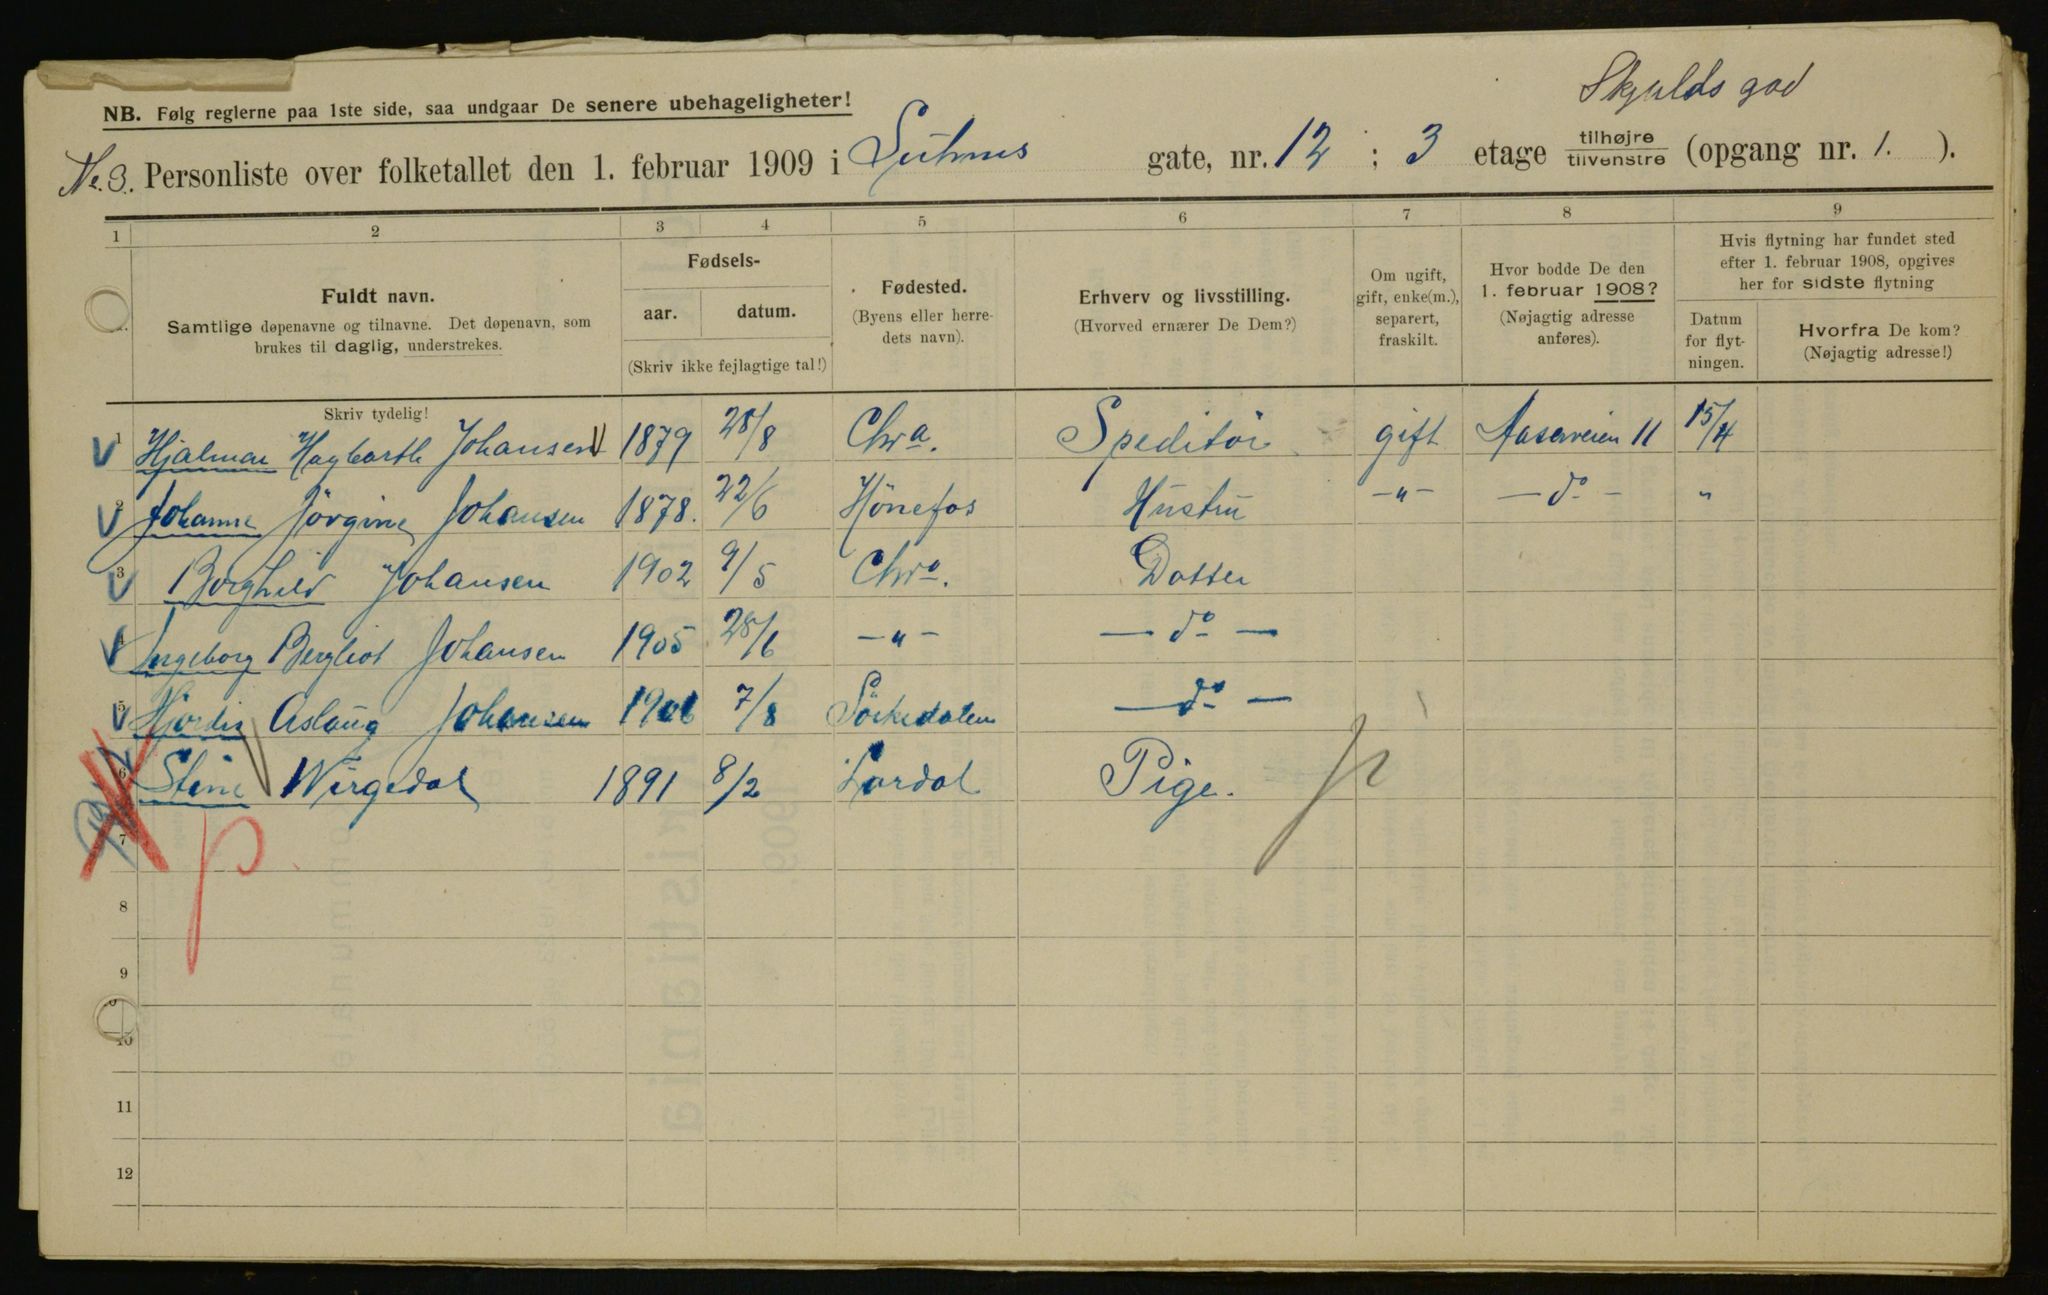 Skjolds gad
NB. Følg reglerne paa 1ste side, saa undgaar De senere ubehageligheter!
No. 3. Personliste over folketallet den 1. februar 1909 i Suhms gate, nr. 12 ; 3 etage tilhøjre / tilvenstre (opgang nr. 1. ).
1 2 3 4 5 6 7 8 9
Fuldt navn.
Samtlige døpenavne og tilnavne. Det døpenavn, som
brukes til daglig, understrekes.
Fødsels-
aar. datum.
(Skriv ikke fejlagtige tal!)
Fødested.
(Byens eller herre-
dets navn).
Erhverv og livsstilling.
(Hvorved ernærer De Dem?)
Om ugift,
gift, enke(m.),
separert,
fraskilt.
Hvor bodde De den
1. februar 1908?
(Nøjagtig adresse
anføres).
Hvis flytning har fundet sted
efter 1. februar 1908, opgives
her for sidste flytning
Datum
for flyt-
ningen.
Hvorfra De kom?
(Nøjagtig adresse!)
Skriv tydelig!
1 Hjalmar Hagbarth Johansen 1879 28/8 Chra. Speditör gift Aaserveien 11 15/4
2 Johanne Jörgine Johansen 1878. 22/6 Hönefos Hustru —"— — do — "
3 Borghild Johansen 1902 9/5 Chra. Datter
4 Ingeborg Bergliot Johansen 1905 28/6 —"— — do —
5 Hjordis Aslaug Johansen 1906 7/8 Sörkedalen — do —
6 Stine Wirgedal 1891 8/2 Lardal Pige.
7
8
9
10
11
12